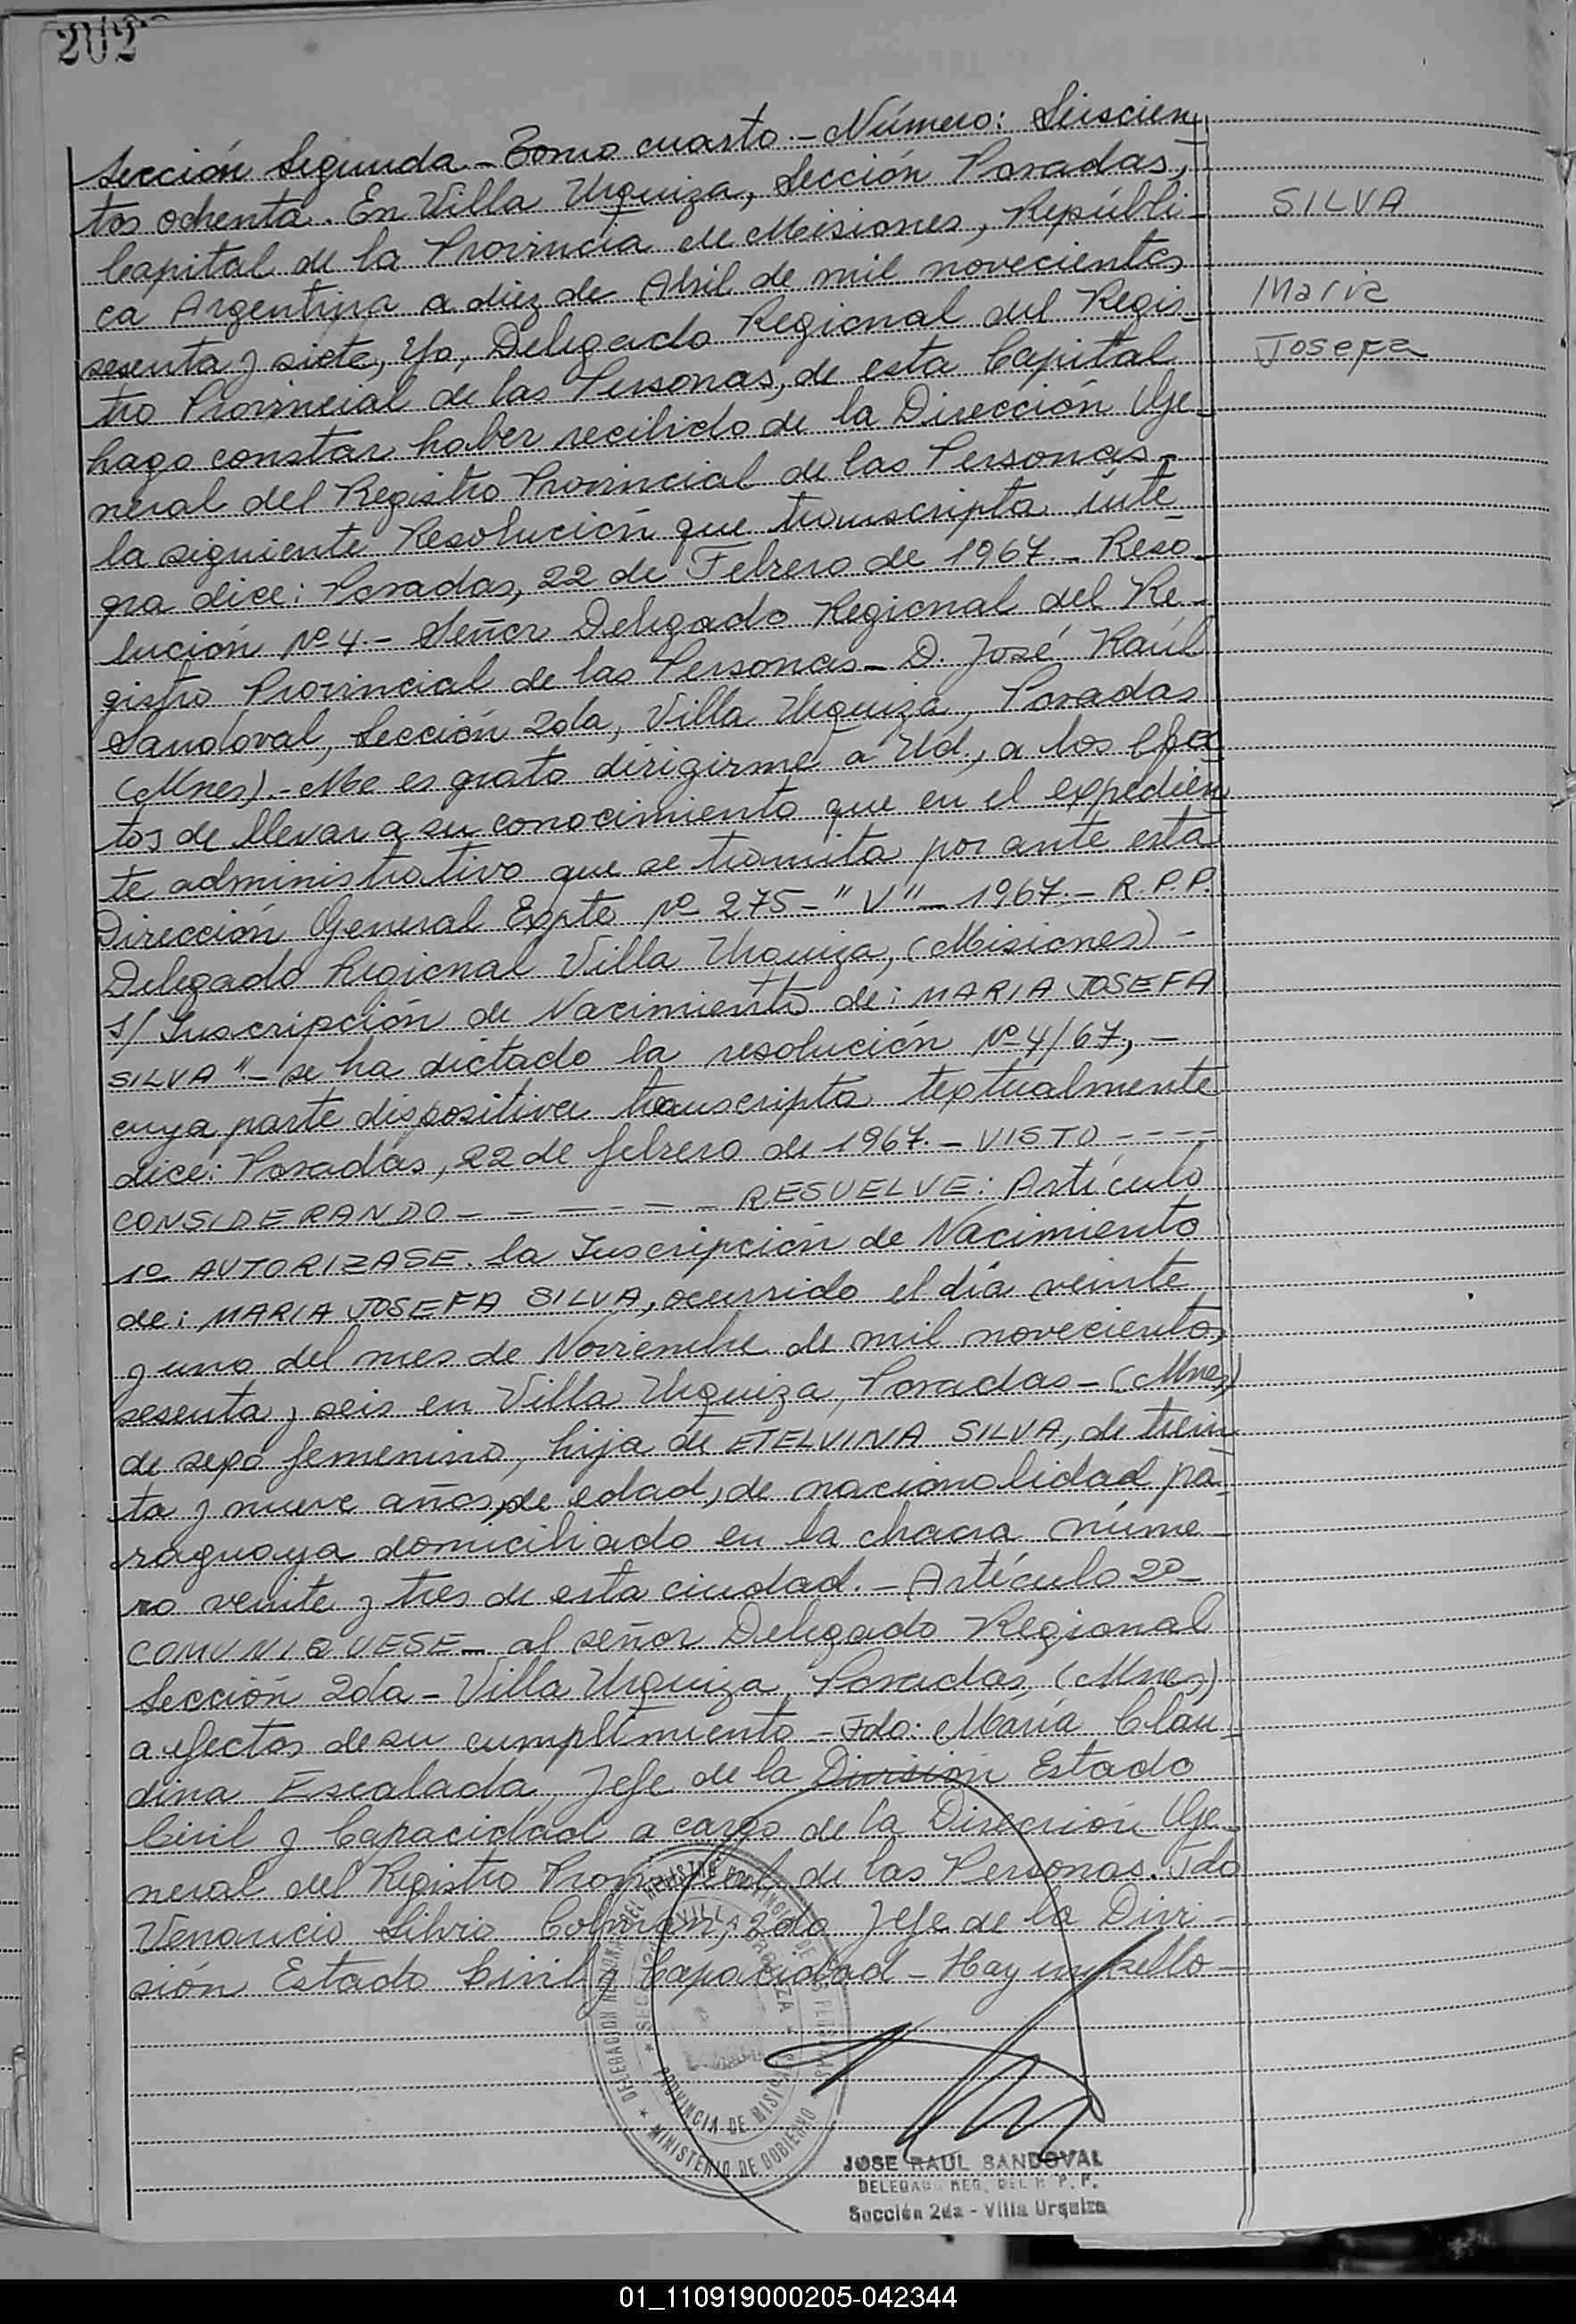 202
Sección Segunda - Tomo cuarto - Número: Seiscien
tos ochenta. En Villa Urquiza, Sección Posadas,
Capital de la Provincia de Misiones, Repúbli-
ca Argentina a diez de Abril de mil novecientos
sesenta y siete, Yo, Delegado Regional del Regis-
tro Provincial de las Personas, de esta Capital
hago constar haber recibido de la Dirección Ge-
neral del Registro Provincial de las Personas -
la siguiente Resolución que transcripta ínte
gra dice: Posadas, 22 de Febrero de 1967 - Reso-
lución Nº 4 - Señor Delegado Regional del Re-
gistro Provincial de las Personas - D. José Raúl
Sandoval, Sección 2da, Villa Urquiza, Posadas
(Mnes).- Me es grato dirigirme a Ud., a los efec
tos de llevar a su conocimiento que en el expedien
te administrativo que se tramita por ante esta
Dirección General Expte Nº 275 - "V" - 1967.- R.P.P.
Delegado Regional Villa Urquiza, (Misiones) -
s/ Inscripción de Nacimiento de: MARIA JOSEFA
SILVA" - se ha dictado la resolución Nº 4/67, -
cuya parte dispositiva transcripta textualmente
dice: Posadas, 22 de febrero de 1967. - VISTO - - - -
CONSIDERANDO - - - - - - RESUELVE: Artículo
1º AUTORIZASE. la Inscripción de Nacimiento
de: MARIA JOSEFA SILVA, ocurrido el día veinte
y uno del mes de Noviembre de mil novecientos
sesenta y seis en Villa Urquiza, Posadas - (Mnes)
de sexo femenino, hija de ETELVINA SILVA, de trein
ta y nueve años, de edad, de nacionalidad pa-
raguaya domiciliado en la chacra núme-
ro veinte y tres de esta ciudad. - Artículo 2º -
COMUNIQUESE - al señor Delegado Regional
Sección 2da - Villa Urquiza, Posadas, (Mnes)
a efectos de su cumplimiento - Fdo: María Clau-
dina Escalada, Jefe de la División Estado
Civil y Capacidad a cargo de la Dirección Ge-
neral del Registro Provincial de las Personas. Fdo
Venancio Silvio Colman, 2do Jefe de la Divi-
sión Estado Civil y Capacidad - Hay un sello -
SILVA
Maria
Josefa
DELEGACION REGIONAL DEL REGISTRO PROVINCIAL DE LAS PERSONAS
★ MINISTERIO DE GOBIERNO
★ SECCION 2da VILLA URQUIZA ★
PROVINCIA DE MISIONES
JOSE RAUL SANDOVAL
DELEGADO REG. DEL R. P. P.
Sección 2da - Villa Urquiza
01_110919000205-042344